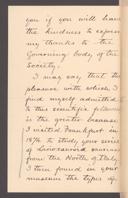 you if you will have
the kindness to express
my thanks to the
Governing body of the
Society.
I may say that the
pleasure with which I
find myself admitted
to this scientific fellowship
is the greater because
I visited Frankfurt in
1876 to study your series
of Lacerta
from the North of Italy.
I then found in your
museum the types of